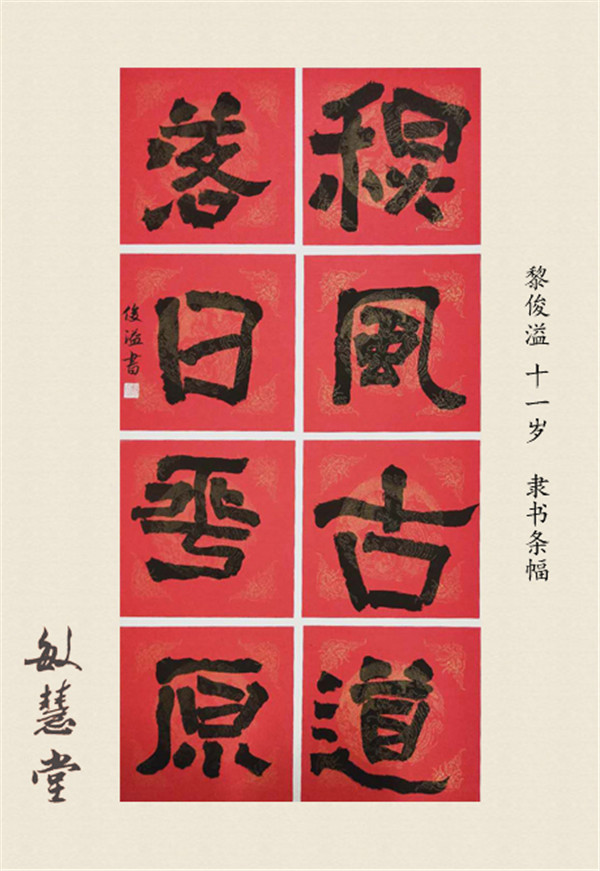 秋風古道
落日平原
俊溢書
黎俊溢 十一岁 隶书条幅
敏慧堂